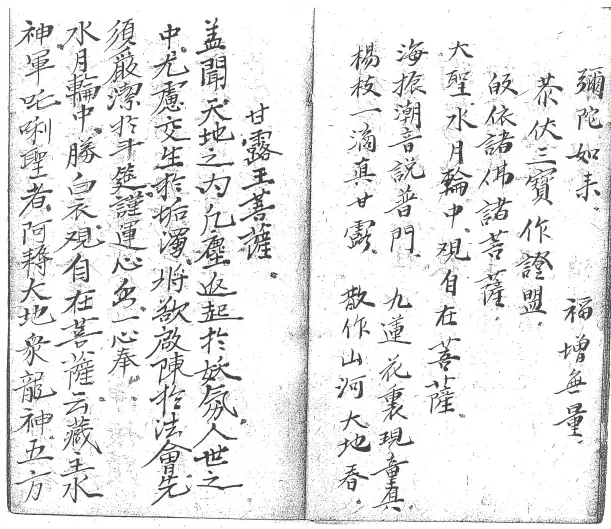 彌陀如来 福增無量
恭伏三寳作證盟
皈依諸佛諸菩薩
大聖水月輪中觀自在菩薩
海振潮音説普門 九蓮花裏現童真
楊枝一滴真甘露 散作山河大地春
甘露王菩薩
盖聞天地之内凡塵返起扵妖氛人世之
中尤慮交生扵垢濁將欲啟陳扵法會先
須嚴潔扵斗筵謹運心香一心奉
水月輪中勝白衣觀自在菩薩云藏主水
神軍吒唎聖者阿蔣大地衆龍神五方